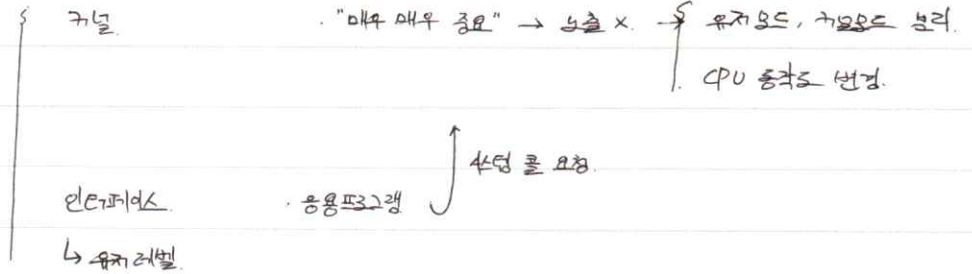 커널. · "매우 매우 중요" → 노출 x. → 유저모드, 커널모드 분리.
CPU 동작도 변경.
시스템 콜 요청.
인터페이스. · 응용프로그램
↳ 유저 레벨.